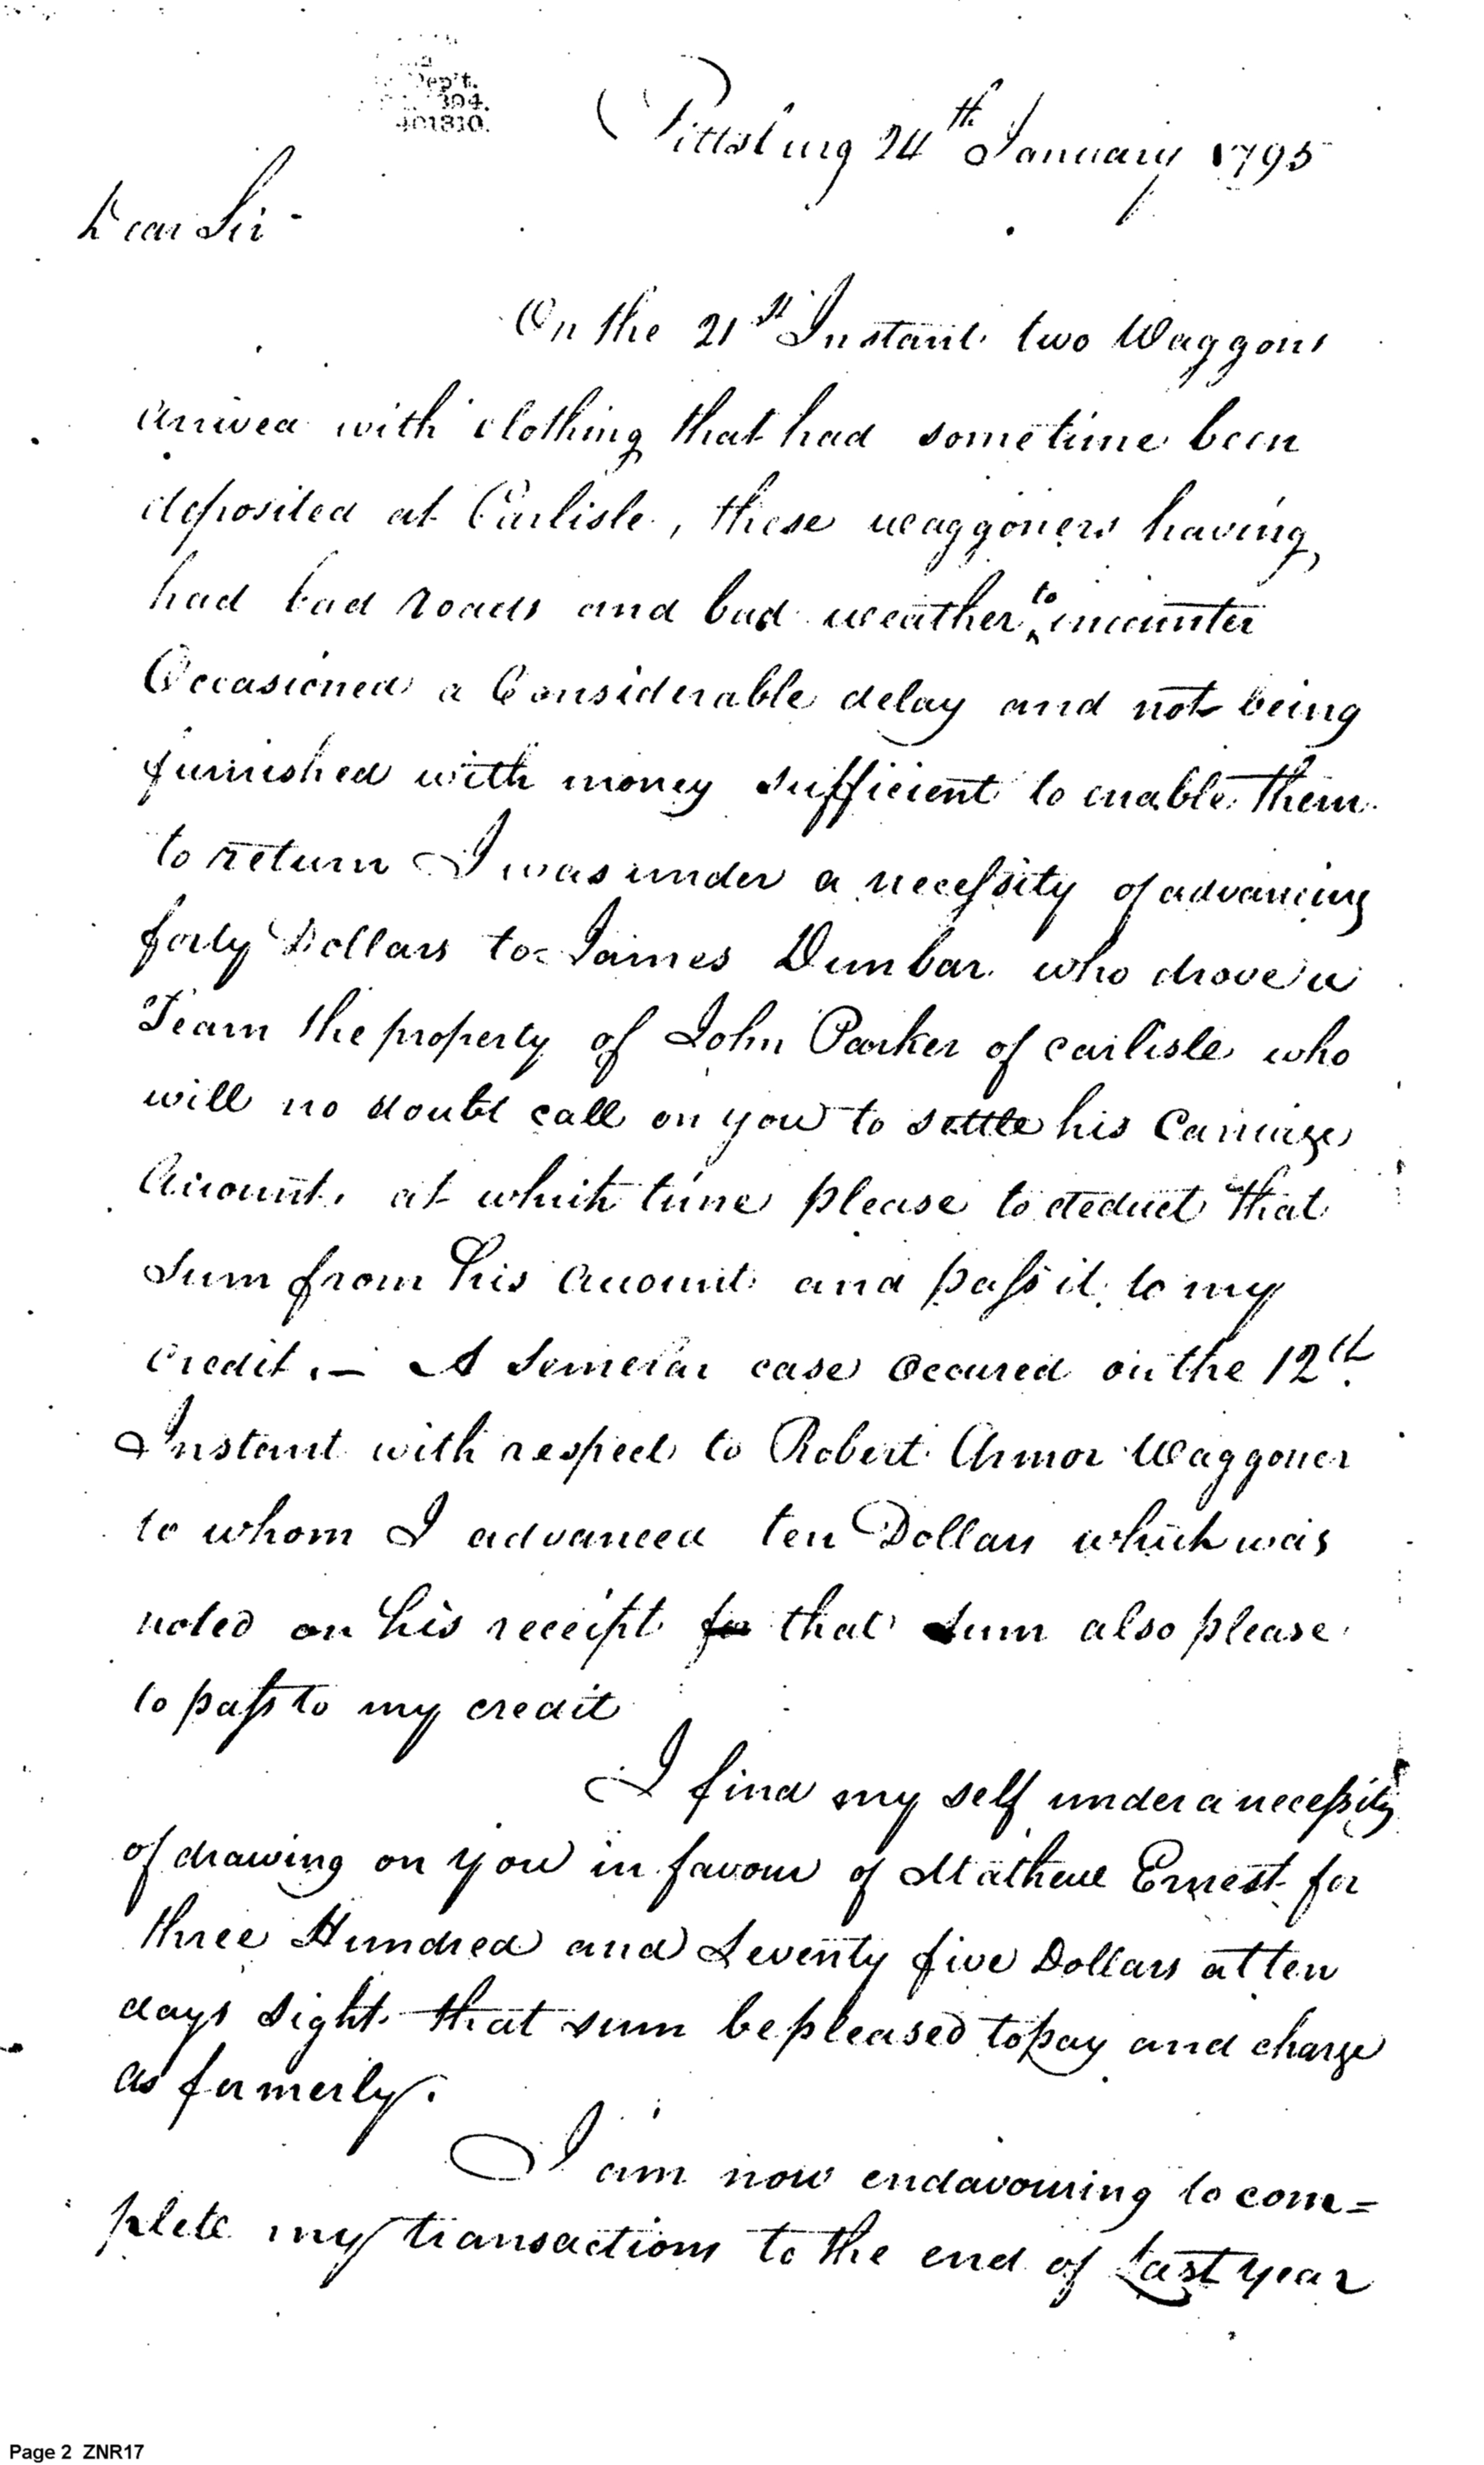 Dep't.
394.
401810.
Pittsburg 24th January 1795
Dear Sir -
On the 21st Instant two Waggons
arrived with clothing that had sometime been
deposited at Carlisle, these waggoners having
had bad roads and bad weather to encounter
Occasioned a Considerable delay and not being
furnished with money sufficient to enable them
to return I was under a necessity of advancing
forty Dollars to James Dunbar who drove a
Team the property of John Parker of Carlisle who
will no doubt call on you to settle his Carriage
Account, at which time please to deduct that
Sum from his Account and pass it to my
Credit. — A Semelar case Occured on the 12th
Instant with respect to Robert Armor Waggoner
to whom I advanced ten Dollars which was
noted on his receipt for that Sum also please
to pass to my credit
I find my self under a necessity
of drawing on you in favour of Mathew Ernest for
three Hundred and Seventy five Dollars at ten
days Sight that sum be pleased to pay and charge
as formerly.
I am now endavouring to com=
plete my transactions to the end of Last year
Page 2 ZNR17